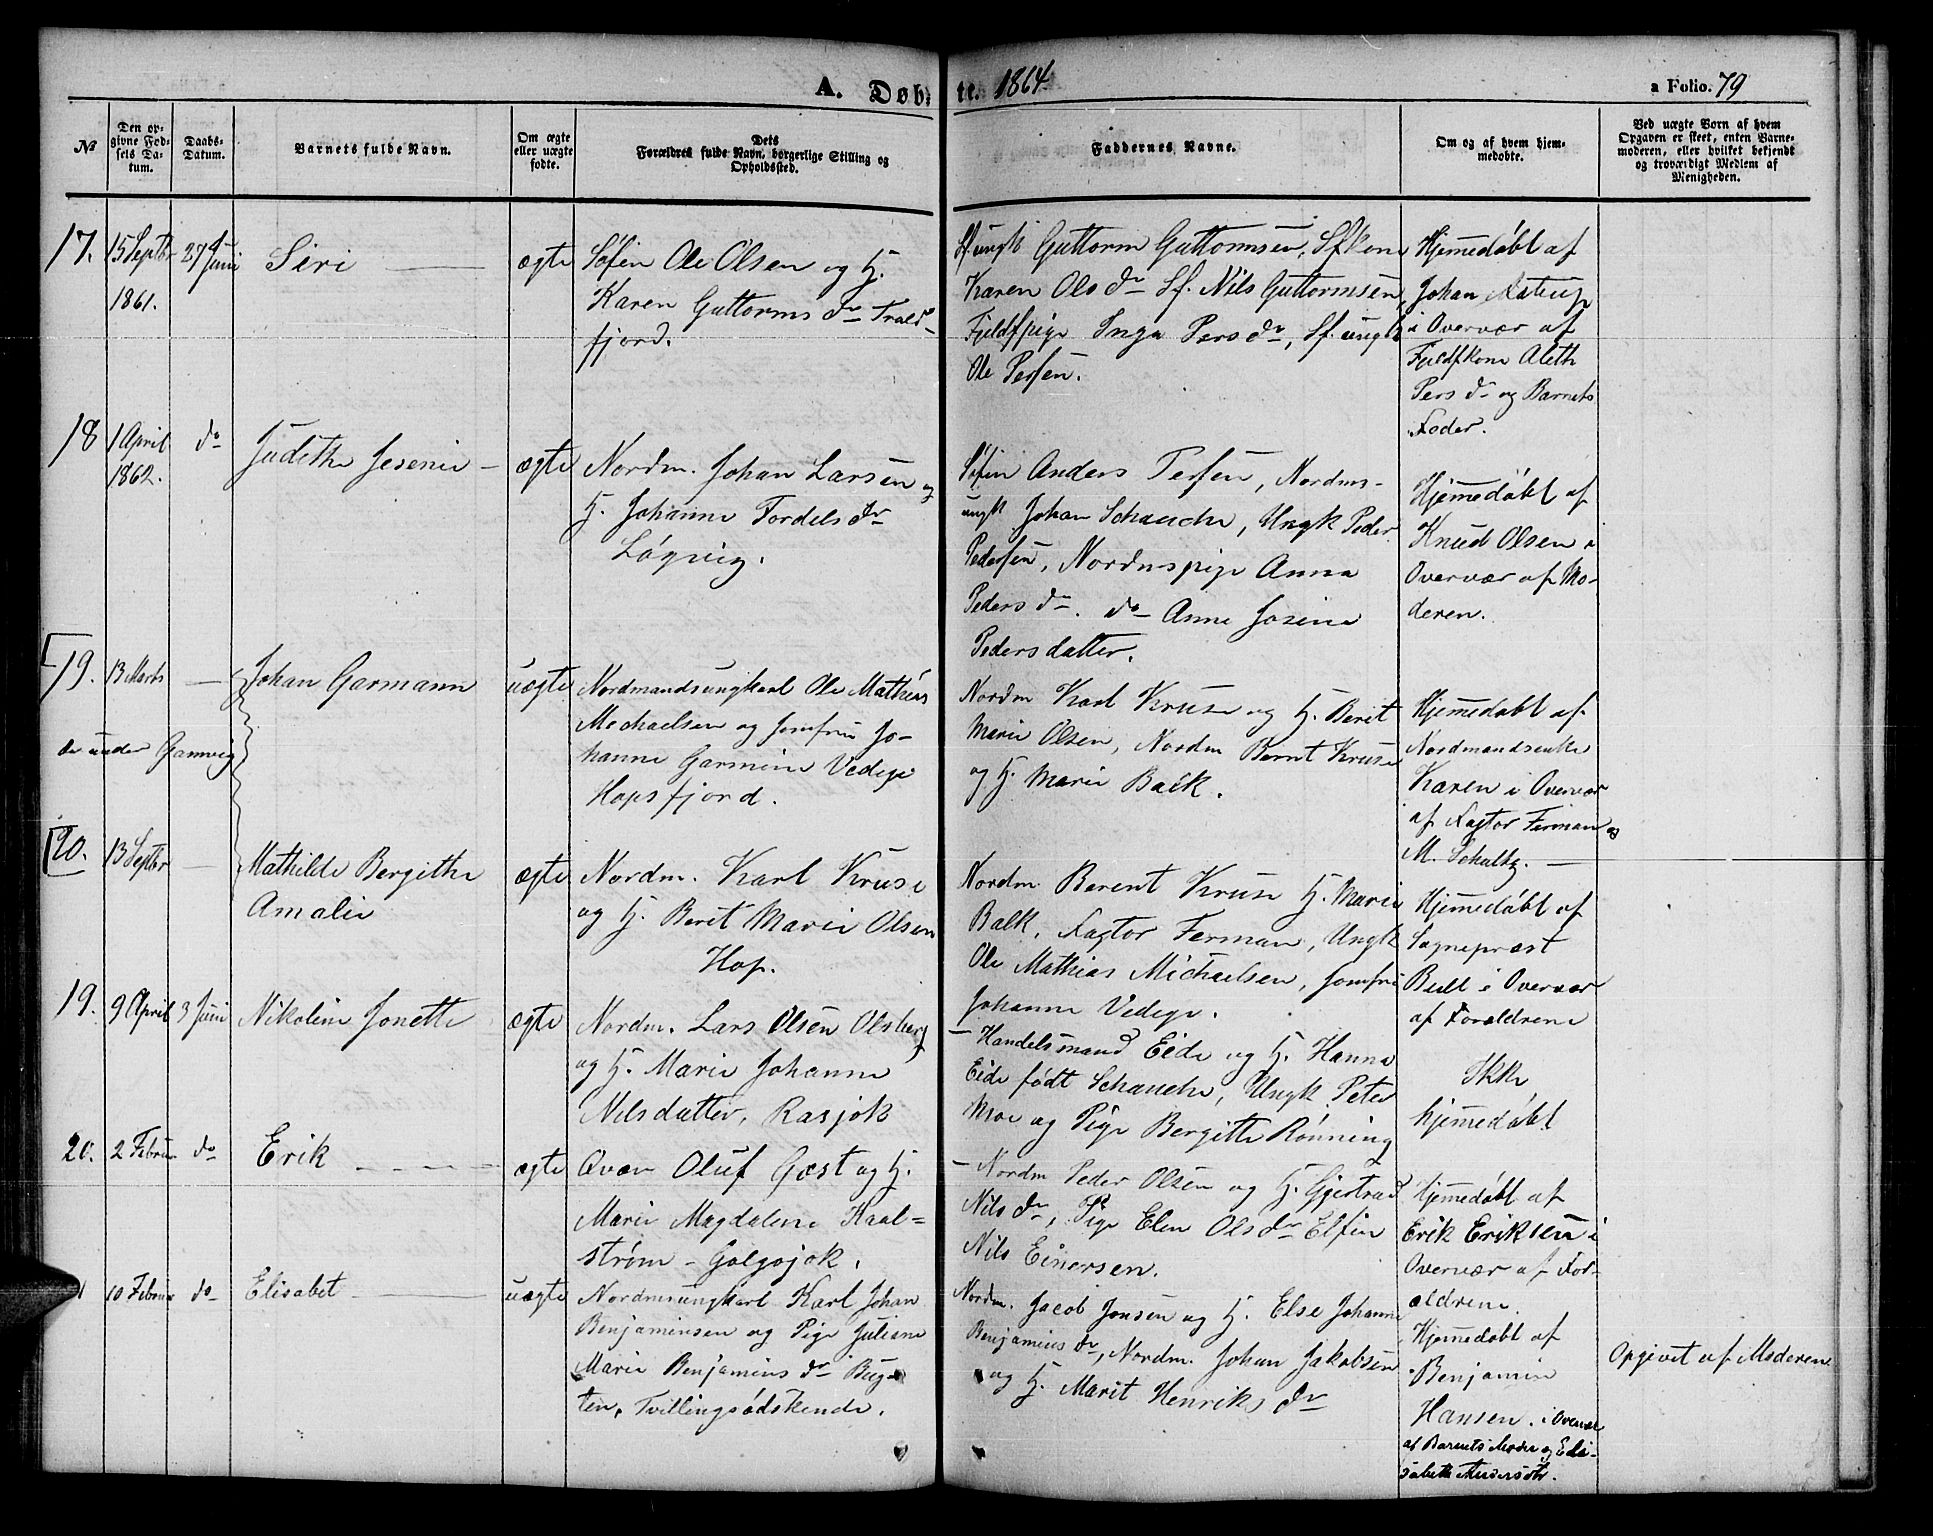 A. Døbte. 1864.
a Folio. 79
№
Den opgivne Fødsels Datum.
Daabs-Datum.
Barnets fulde Navn.
Om ægte eller uægte fødte.
Dets Forældres fulde Navn, borgerlige Stilling og Opholdssted.
Faddernes Navne.
Om og af hvem hjemmedøbte.
Ved uægte Born af hvem Opgaven er skeet, enten Barnemoderen, eller hvilket bekjendt og troværdigt Medlem af Menigheden.
17.
15 Septbr
1861.
27 Juni
Siri
ægte
Søfin Ole Olsen og H.
Karen Guttorms dr Trold-
fjord.
Sf. ungk Guttorm Guttormsen, Sfkone
Karen Ols dr Sf. Nils Guttormsen,
Fjeldfpige Inga Pers dr, Sf. ungk
Ole Persen.
Hjemmedøbt af
Johan Aastrup
i Overvær af
Fjeldfkone Aleth
Pers dr og Barnets
Fader.
18
1 April
1862.
do
Judithe Jesenie
ægte
Nordm. Johan Larsen og
H. Johanne Tordels dr
Løgvig.
Søfin Anders Persen, Nordms-
ungk Johan Schanche, Ungk Peder
Pedersen, Nordmspige Anna
Peders dr. do Anne Josine
Pedersdatter.
Hjemmedøbt af
Knud Olsen i
Overvær af Mo-
deren.
19.
13 Marts
Johan Garmann
uægte
Nordmandsungkarl Ole Mathias
Mechaelsen og Jomfru Jo-
hanne Garmine Vedege
Hopsfjord.
Nordm Karl Kruse og H. Berit
Marie Olsen, Nordm Bernt Kruse
og H. Marie Balk.
Hjemmedøbt af
Nordmandsenke
Karen i Overvær
af Fagtor Ferman og
M. Schultz.
se under Gamvig
20.
13 Septbr
Mathilde Bergithe
Amalie
ægte
Nordm. Karl Kruse
og H. Berit Marie Olsen
Hop.
Nordm Berent Kruse H. Marie
Balk, Fagtor Ferman, Ungk
Ole Mathias Michaelsen, Jomfru
Johanne Vedege.
Hjemmedøbt af
Sognepræst
Bull i Overvær
af Forældrene
19.
9 April
3 Juni
Nikoline Jonette
ægte
Nordm. Lars Olsen Olsberg
og H. Marie Johanne
Nilsdatter, Rasjok
Handelsmand Eide og H. Hanna
Eide født Schanche, Ungk Peter
Moe og Pige Bergitte Rønning
Ikke
hjemmedøbt
20.
2 Februar
do
Erik
ægte
Qvæn Oluf Gæst og H.
Marie Magdalene Kaal=
strøm - Golgojok.
Nordm Peder Olsen og H. Gjertrud
Nils dr, Pige Elen Ols dr Elfin
Nils Einersen.
Hjemmedøbt af
Erik Eriksen i
Overvær af For-
ældrene.
10 Februar
do
Elisabet
uægte
Nordmsungkarl Karl Johan
Benjaminsen og Pige Juliane
Marie Benjamins dr Bug-
ten, Tvillingsødskende.
Nordm. Jacob Jonsen og H. Else Johanne
Benjamins dr, Nordm. Johan Jakobsen
og H. Marit Henriks dr
Hjemmedøbt af
Benjamin
Hansen. i Overvær
af Barnets Moder og Eli-
sabeth Andersdtr.
Opgivet af Moderen